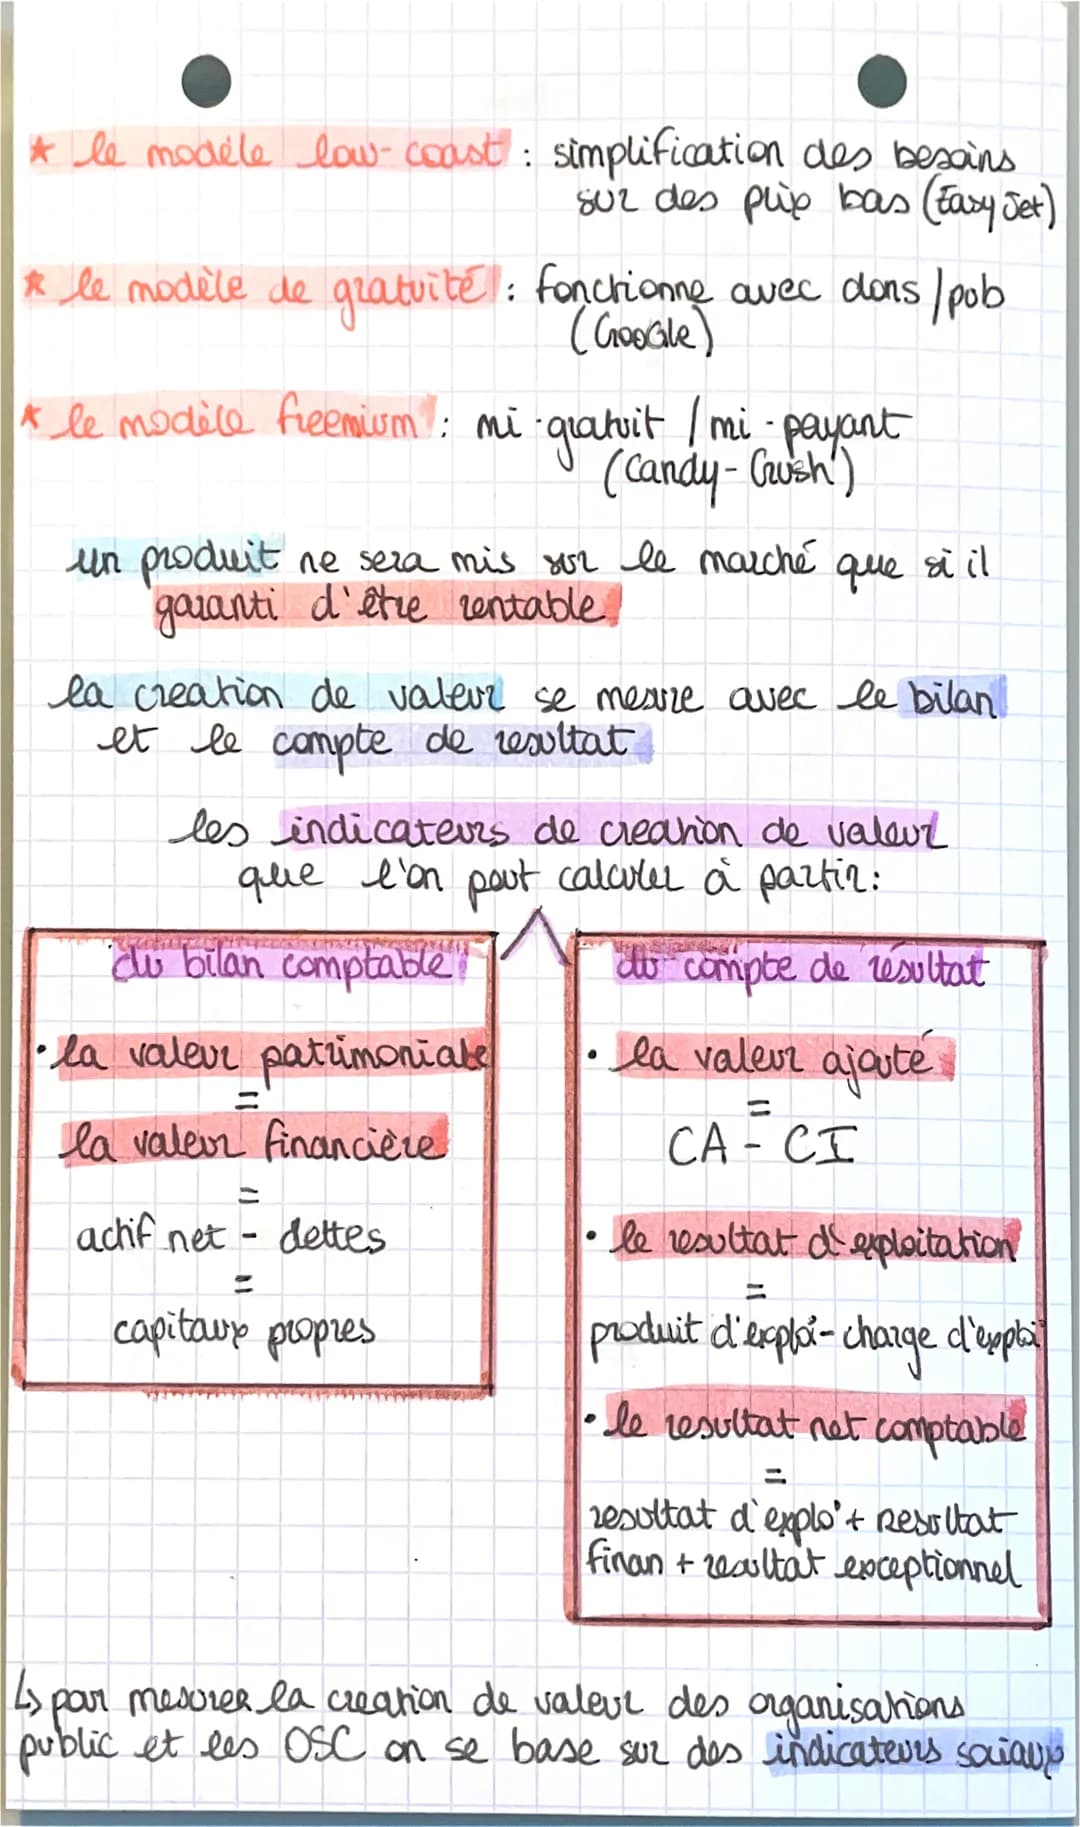 ★ le modèle low-coast : simplification des besoins
sur des prix bas (EasyJet)
★ le modèle de gratuité : fonctionne avec dons/pub
(Google)
★ le modèle freemium : mi-gratuit / mi-payant
(Candy-Crush)
un produit ne sera mis sur le marché que si il
garanti d'être rentable
la creation de valeur se mesure avec le bilan
et le compte de resultat
les indicateurs de creation de valeur
que l'on peut calculer à partir:
du bilan comptable
• la valeur patrimoniale
=
la valeur financière
=
actif net - dettes
=
capitaux propres
du compte de résultat
• la valeur ajouté
=
CA - CI
• le resultat d'exploitation
=
produit d'exploi- charge d'exploi
• le resultat net comptable
=
resultat d'explo'+ Resultat
finan + resultat exceptionnel
↳ pour mesurer la creation de valeur des organisations
public et les OSC on se base sur des indicateurs sociaux